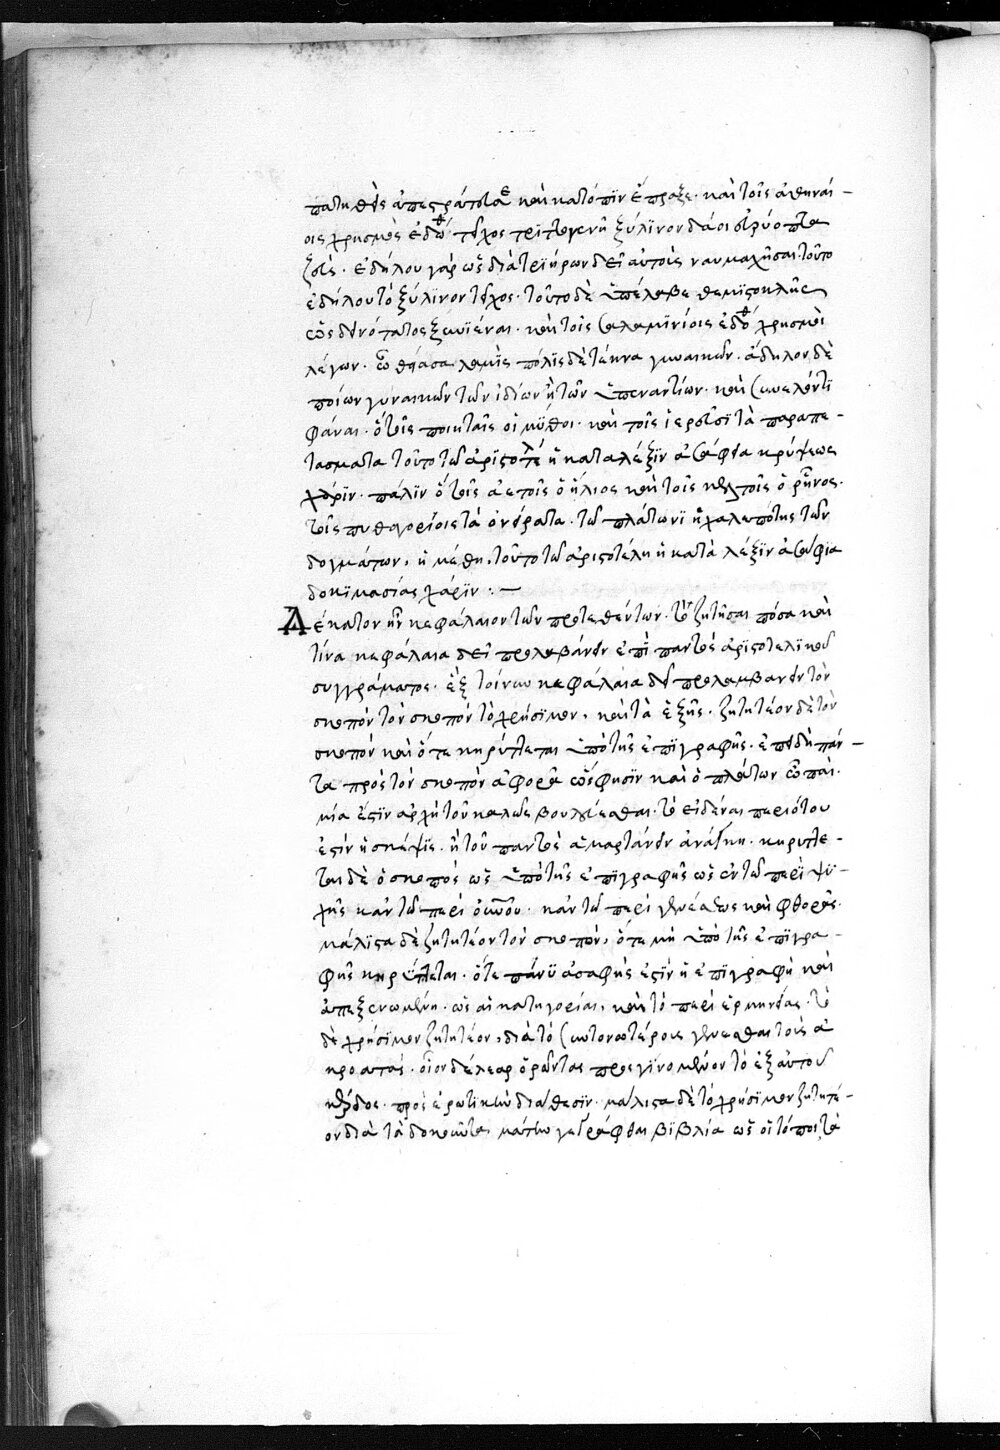 πατηθεὶς ἀπεστράτευσε καὶ κατόπιν ἔπραξε. καὶ τοῖς ἀθηναί-
οις χρησμὸς ἐδόθη τεῖχος τριτογενῆ ξύλινον διδοῖ εὐρύοπα
ζεύς. ἐδήλου γὰρ ὡς διὰ τριήρων δεῖ αὐτοὺς ναυμαχῆσαι. τοῦτο
ἐδήλου τὸ ξύλινον τεῖχος. τοῦτο δὲ ὑπέλαβε θεμιστοκλῆς
ὡς δεινότατος ξυνιέναι. καὶ τοῖς σαλαμινίοις ἐδόθη χρησμὸς
λέγων. ὦ θεία σαλαμὶς πόλις δὲ τέκνα γυναικῶν. ἄδηλον δὲ
ποίων γυναικῶν τῶν ἰδίων ἢ τῶν ὑπεναντίων. καὶ συνελόντι
φάναι. ὃ τοῖς ποιηταῖς οἱ μῦθοι. καὶ τοῖς ἱερεῦσι τὰ παραπε-
τάσματα τοῦτο τῶ ἀριστοτέλει ἡ κατὰ λέξιν ἀσάφεια κρύψεως
χάριν. πάλιν ὃ τοῖς ἀετοῖς ὁ ἥλιος καὶ τοῖς κελτοῖς ὁ ῥῆνος.
τοῖς πυθαγορίοις τὰ ὀνείρατα. τῶ πλάτωνι ἡ χαλεπότης τῶν
δογμάτων, ἡ μέθη, τοῦτο τῶ ἀριστοτέλη ἡ κατὰ λέξιν ἀσάφια
δοκιμασίας χάριν :—
Δέκατον ἦν κεφάλαιον τῶν προτεθέντων. τὸ ζητῆσαι πόσα καὶ
τίνα κεφάλαια δεῖ προλαβάνειν ἐπὶ παντὸς ἀριστοτελικοῦ
συγγράματος. ἓξ τοίνυν κεφάλαια δεῖ προλαμβάνειν τὸν
σκοπὸν τὸν σκοπὸν τὸ χρήσιμον, καὶ τὰ ἑξῆς. ζητητέον δὲ τὸν
σκοπὸν καὶ ὅτε κηρύττεται ὑπὸ τῆς ἐπιγραφῆς. ἐπειδὴ πάν-
τα πρὸς τὸν σκοπὸν ἀφορᾶ ὥς φησιν καὶ ὁ πλάτων ὦ παῖ.
μία ἐστὶν ἀρχὴ τοῦ καλῶς βουλεύεσθαι. τὸ εἰδέναι περὶ ὅτου
ἐστὶν ἡ σκέψις. ἢ τοῦ παντὸς ἁμαρτάνειν ἀνάγκη. κηρύττε-
ται δὲ ὁ σκοπὸς ὡς ὑπὸ τῆς ἐπιγραφῆς ὡς ἐν τῶ περὶ ψυ-
χῆς κἀν τῶ περὶ οὐνοῦ. κἀν τῶ περὶ γενέσεως καὶ φθορᾶς.
μάλιστα δὲ ζητητέον τὸν σκοπὸν, ὅτε μὴ ὑπὸ τῆς ἐπιγρα-
φῆς κηρύττεται. ὅτε πάνυ ἀσαφής ἐστιν ἡ ἐπιγραφὴ καὶ
ἀπεξενωμένη. ὡς αἱ κατηγορίαι, καὶ τὸ περὶ ἑρμηνείας. τὸ
δὲ χρήσιμον ζητητέον, διὰ τὸ συντονωτέρους γενέσθαι τοὺς ἀ
κροατάς. οἷον δέλεαρ ὁρῶντας προσγινόμενον τὸ ἐξ αὐτοῦ
κέρδος. πρὸς ἐρωτικὴν διάθεσιν. μάλιστα δὲ τὸ χρήσιμον ζητητέ-
ον διὰ τὰ δοκοῦντα μάτην γεγράφθαι βιβλία ὡς οἱ τόποι τὰ